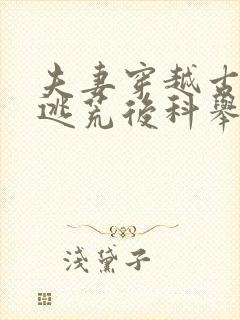 夫妻穿越古
逃荒後科舉
淺黛子